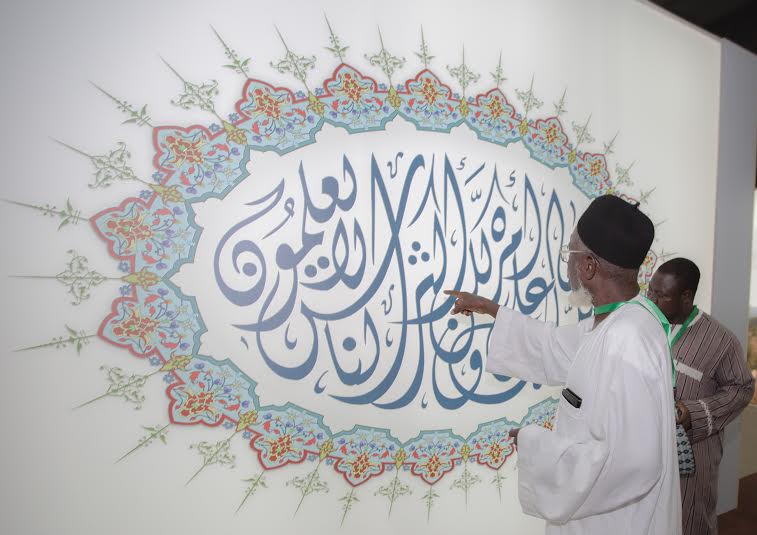 أمره ولكن أكثر الناس لا يعلمون